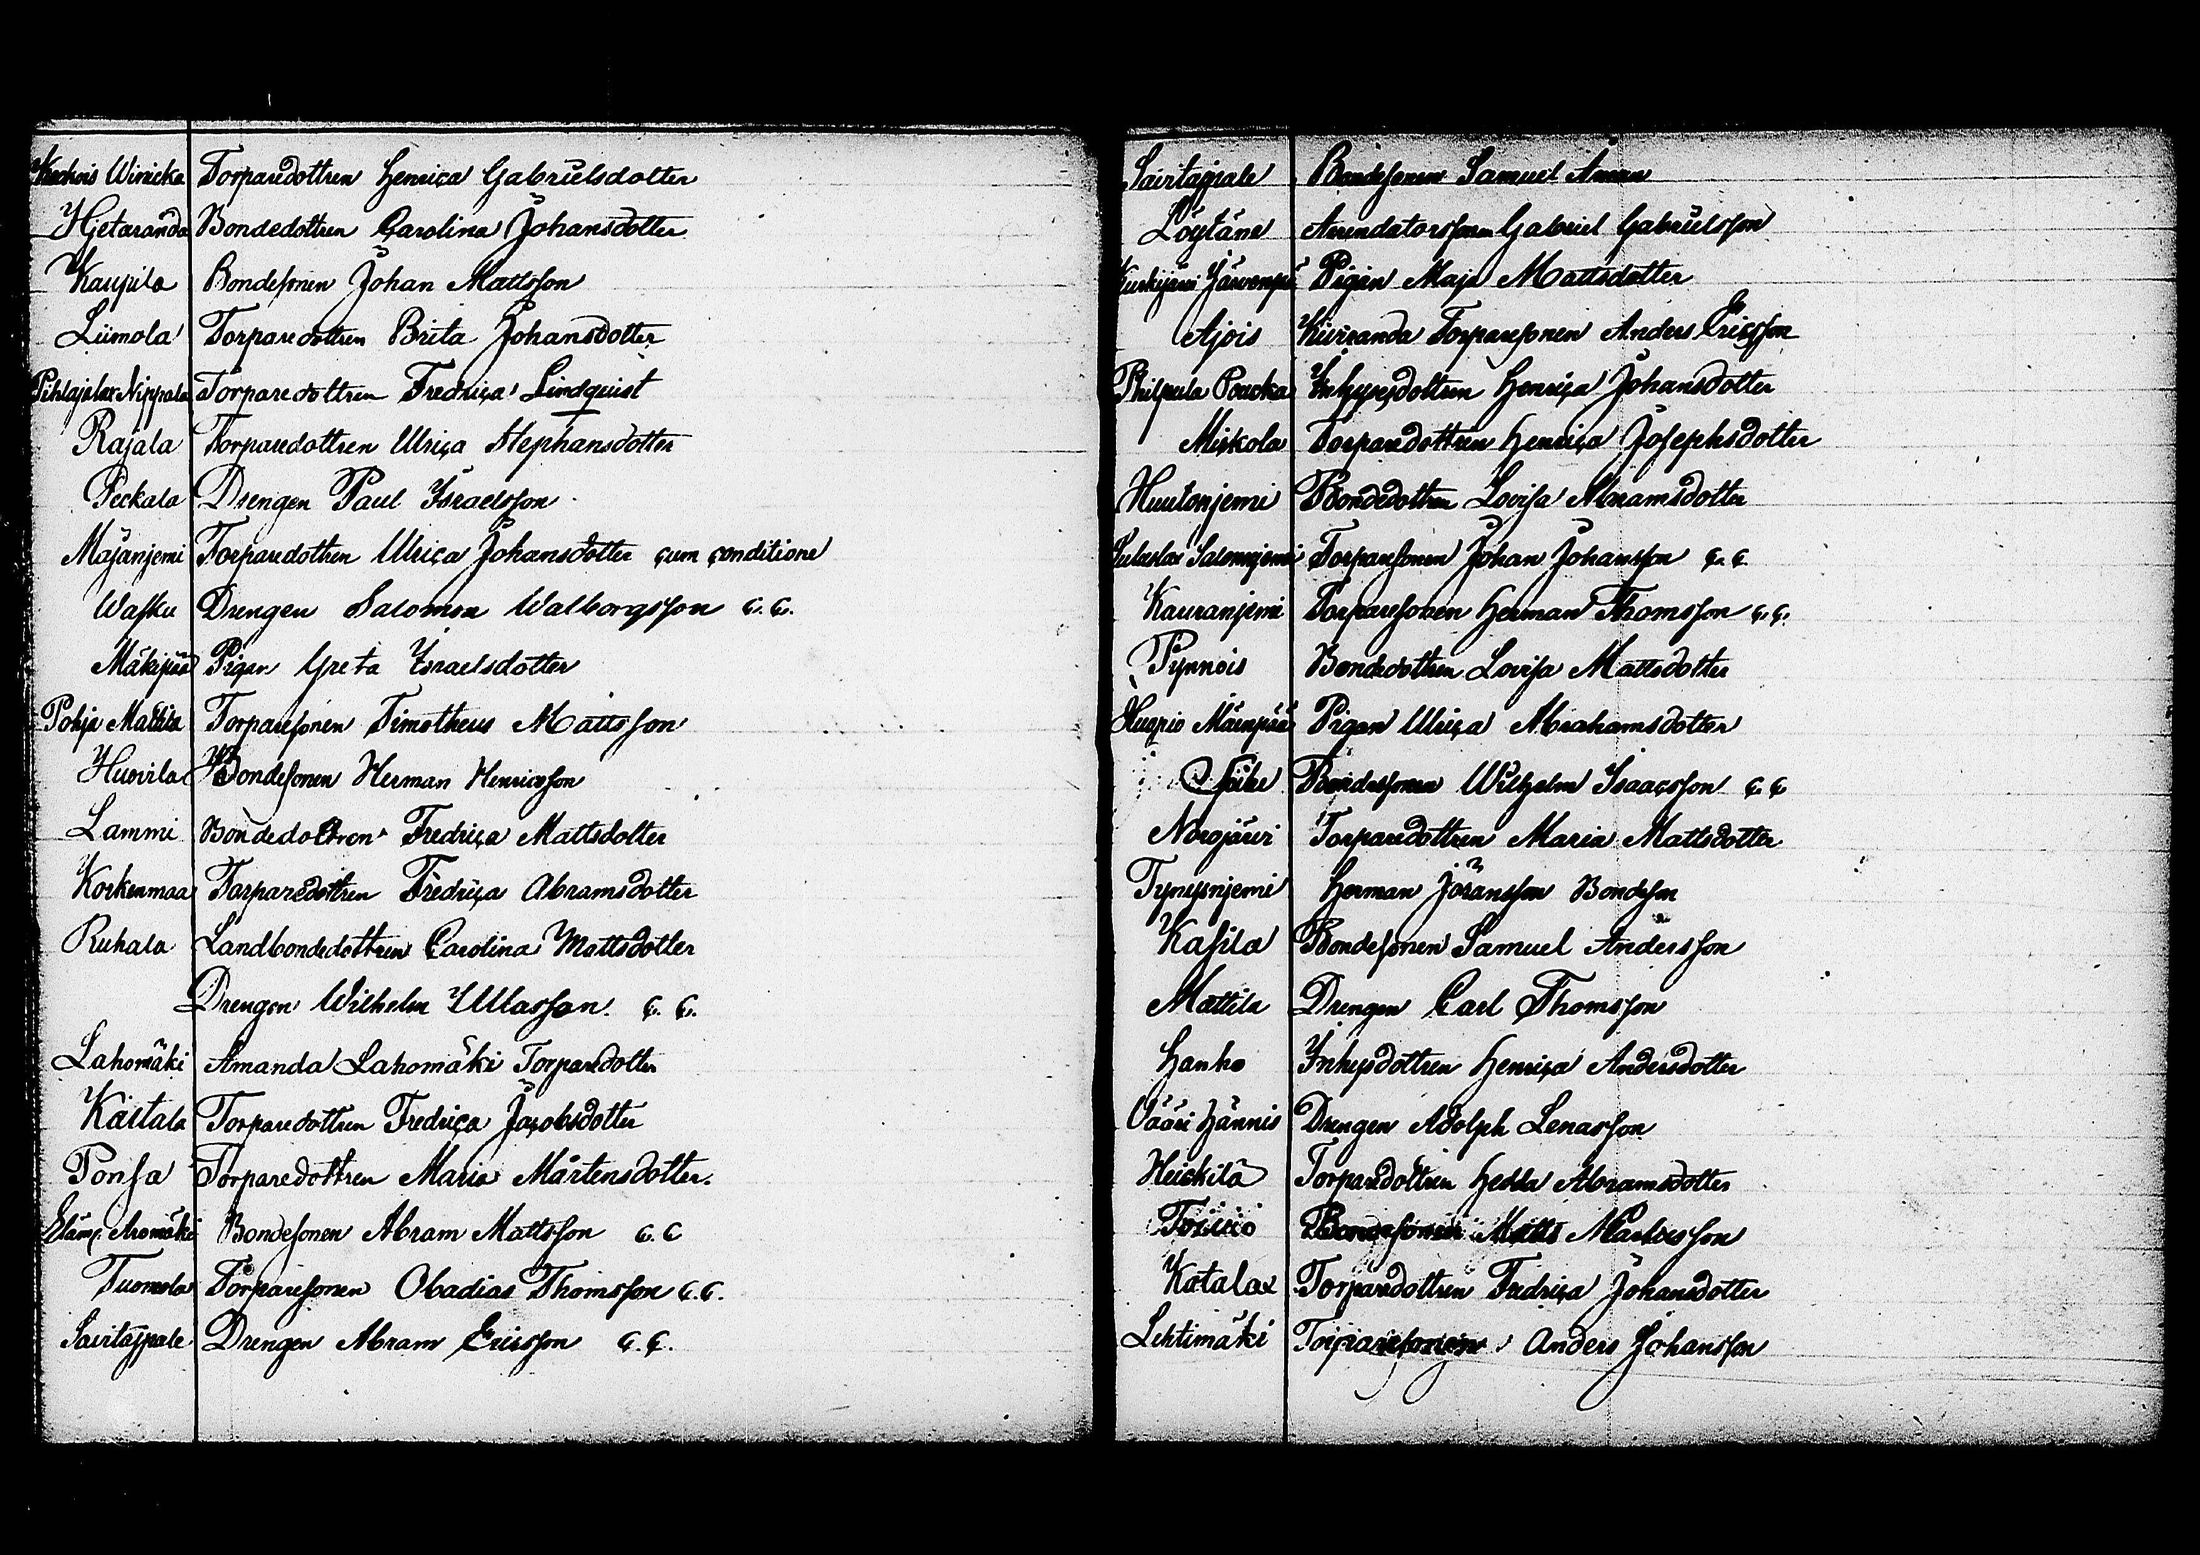 Wiricka Torparedottren Henrica Gabrielsdotter
Hjetaranda Bondedottren Carolina Johansdotter
Kaupila Bondesonen Johan Mattsson
Liimola Torparedottren Brita Johansdotter
Pihlajalax Nippala Torparedottren Fredrica Lindquist
Rajala Torparedottren Ulrica Stephansdotter
Peckala Drengen Paul Israelsson
Majanjemi Torparedottren Ulrica Johansdotter cum conditione
Wasku Drengen Salomon Walborgsson c.c.
Mäkipää Pigan Greta Israelsdotter
Pohja Mattila Torparesonen Timotheus Mattsson
Huovila Bondesonen Herman Henricsson
Lammi Bondedottren Fredrica Mattsdotter
Korkenmaa Torparedottren Fredrica Abramsdotter
Ruhala Landbondedottren Carolina Mattsdotter
Drengen Wilhelm Ullasson c.c.
Lahomäki Amanda Lahomäki Torparedotter
Kästala Torparedottren Fredrica Jacobsdotter
Ponsa Torparedottren Maria Mårtensdotter.
Aromäki Bondesonen Abram Mattsson c.c
Tuomola Torparesonen Obadias Thomsson c.c.
Savitaipale Drengen Abram Ericsson c.c.
Savitaipale Bondesonen Samuel
Löytäne Arrendatorssonen Gabriel Gabrielsson
Järvenpä Pigan Maja Mattsdotter
Ajois Kiviranda Torparesonen Anders Ericsson
Philpula Poucka Inhysesdottren Henrica Johansdotter
Miskola Torparedottren Henrica Josephsdotter
Huutonjemi Bondedottren Lovisa Abramsdotter
Salomnjemi Torparesonen Johan Johansson c.c.
Kauranjemi Torparesonen Herman Thomsson c.c.
Pynnöis Bondedottren Lovisa Mattsdotter
Huopio Mäenpää Pigan Ulrica Abrahamsdotter
Bondesonen Wilhelm Isaacsson c.c
Norojärvi Torparedottren Maria Mattsdotter
Tynysnjemi Herman Göransson Bondeson
Kasila Bondesonen Samuel Andersson
Mattila Drengen Carl Thomsson
Hanho Inhysdottren Henrica Andersdotter
Wääri Hännis Drengen Adolph Lenasson
Heickilä Torparedottren Hedda Abramsdotter
Bondesonen Matts
Katalax Torparedottren Fredrica Johansdotter
Lehtimäki Torparesonen Anders Johansson